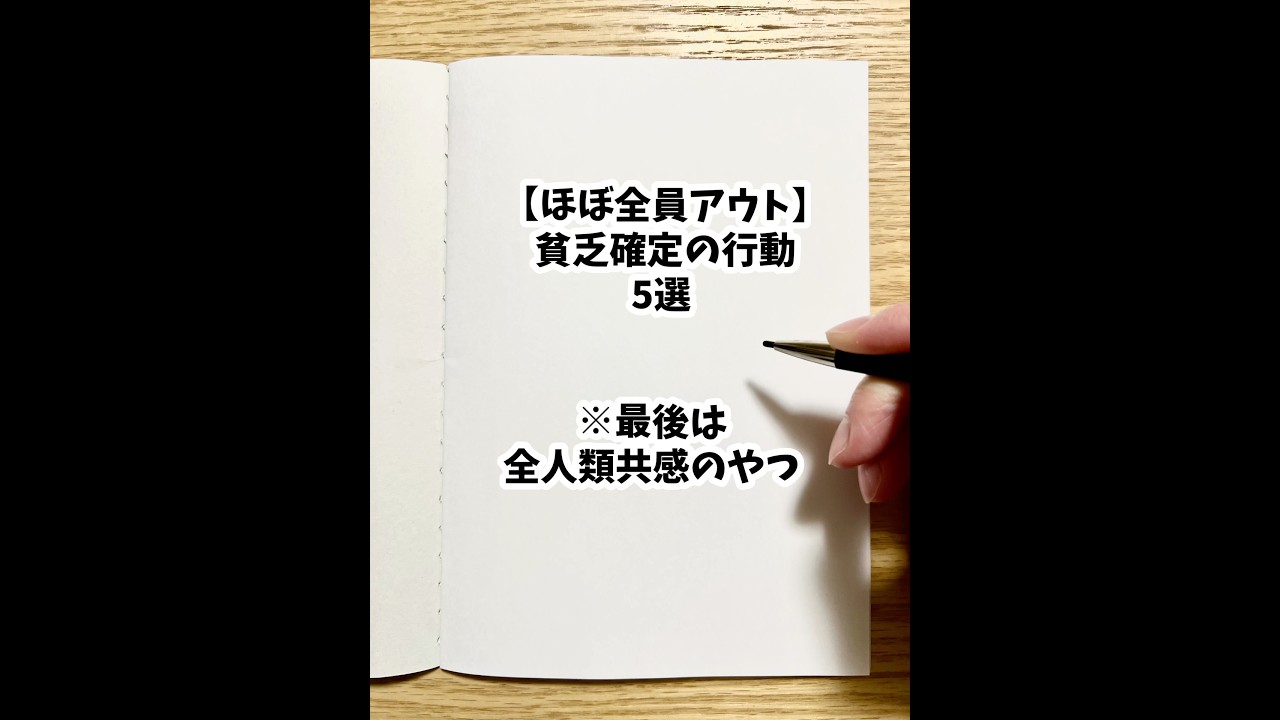 【ほぼ全員アウト】
貧乏確定の行動
5選
※最後は
全人類共感のやつ